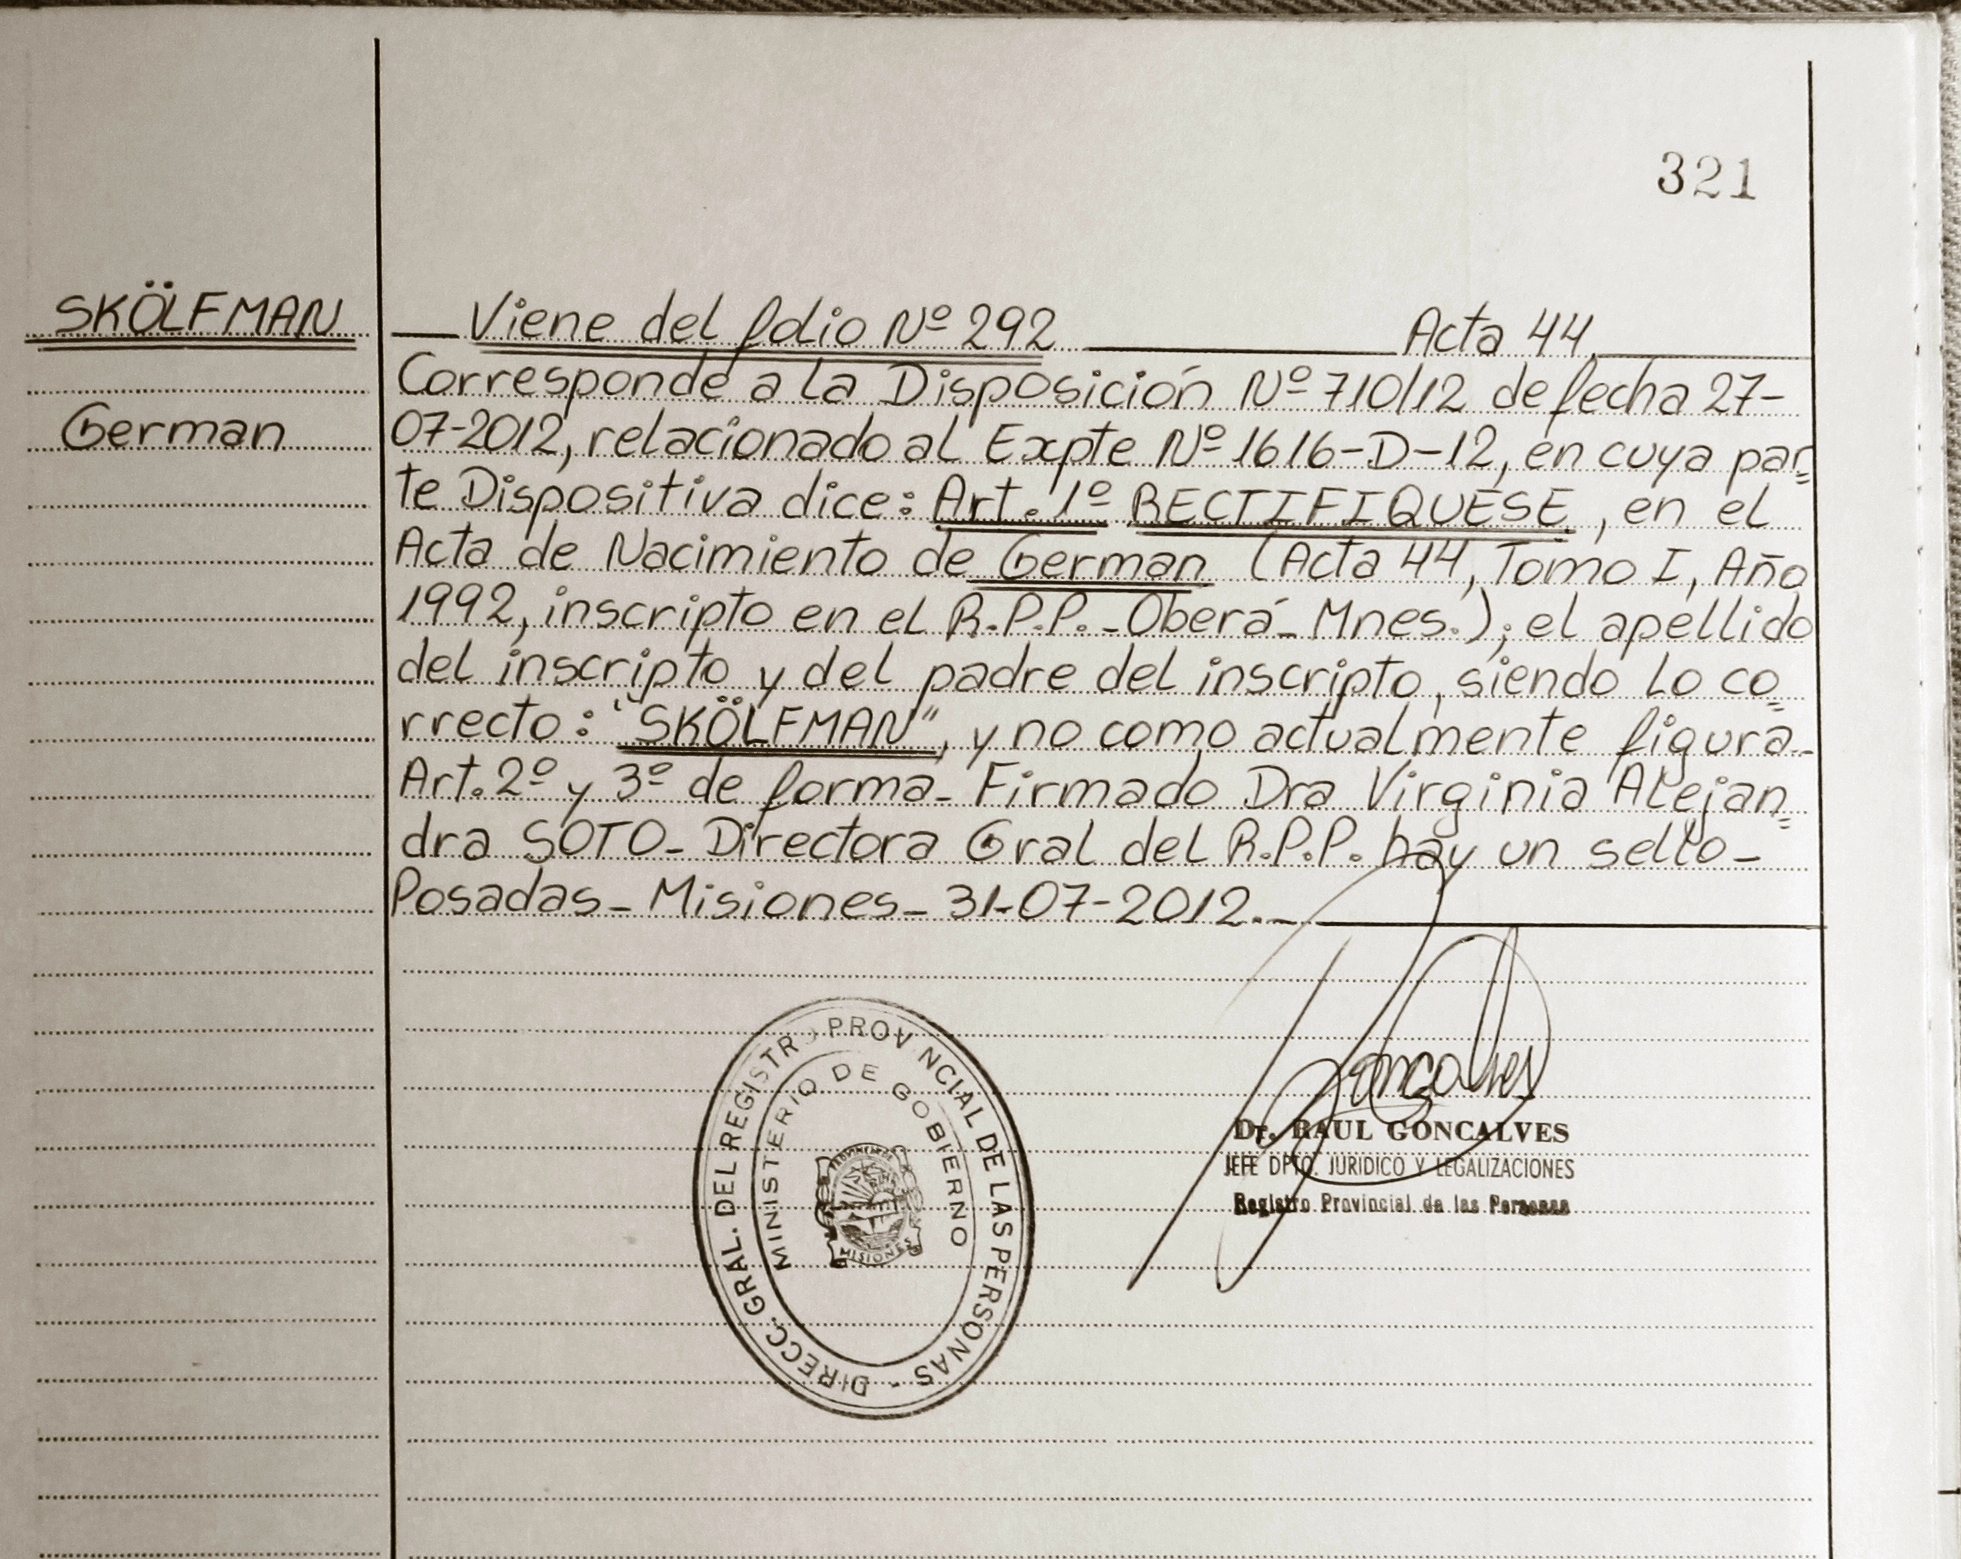 321
SKÖLFMAN
German
Viene del folio Nº 292 Acta 44
Corresponde a la Disposición Nº 710/12 de fecha 27-
07-2012, relacionado al Expte Nº 1616-D-12, en cuya par=
te Dispositiva dice: Art. 1º RECTIFIQUESE, en el
Acta de Nacimiento de German (Acta 44, Tomo I, Año
1992, inscripto en el R.P.P. - Oberá - Mnes.); el apellido
del inscripto y del padre del inscripto, siendo lo co=
rrecto: "SKÖLFMAN", y no como actualmente figura-
Art. 2º y 3º de forma - Firmado Dra Virginia Alejan=
dra SOTO - Directora Gral del R.P.P. hay un sello -
Posadas - Misiones - 31-07-2012.-
DIRECC. GRAL. DEL REGISTRO PROVINCIAL DE LAS PERSONAS -
MINISTERIO DE GOBIERNO
MISIONES
Goncalves
Dr. RAUL GONCALVES
JEFE DPTO. JURIDICO Y LEGALIZACIONES
Registro Provincial de las Personas